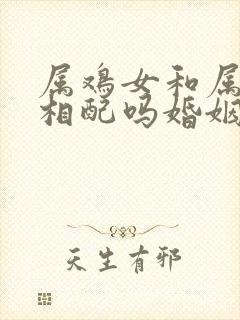 属鸡女和属
相配吗婚姻
天生有邪